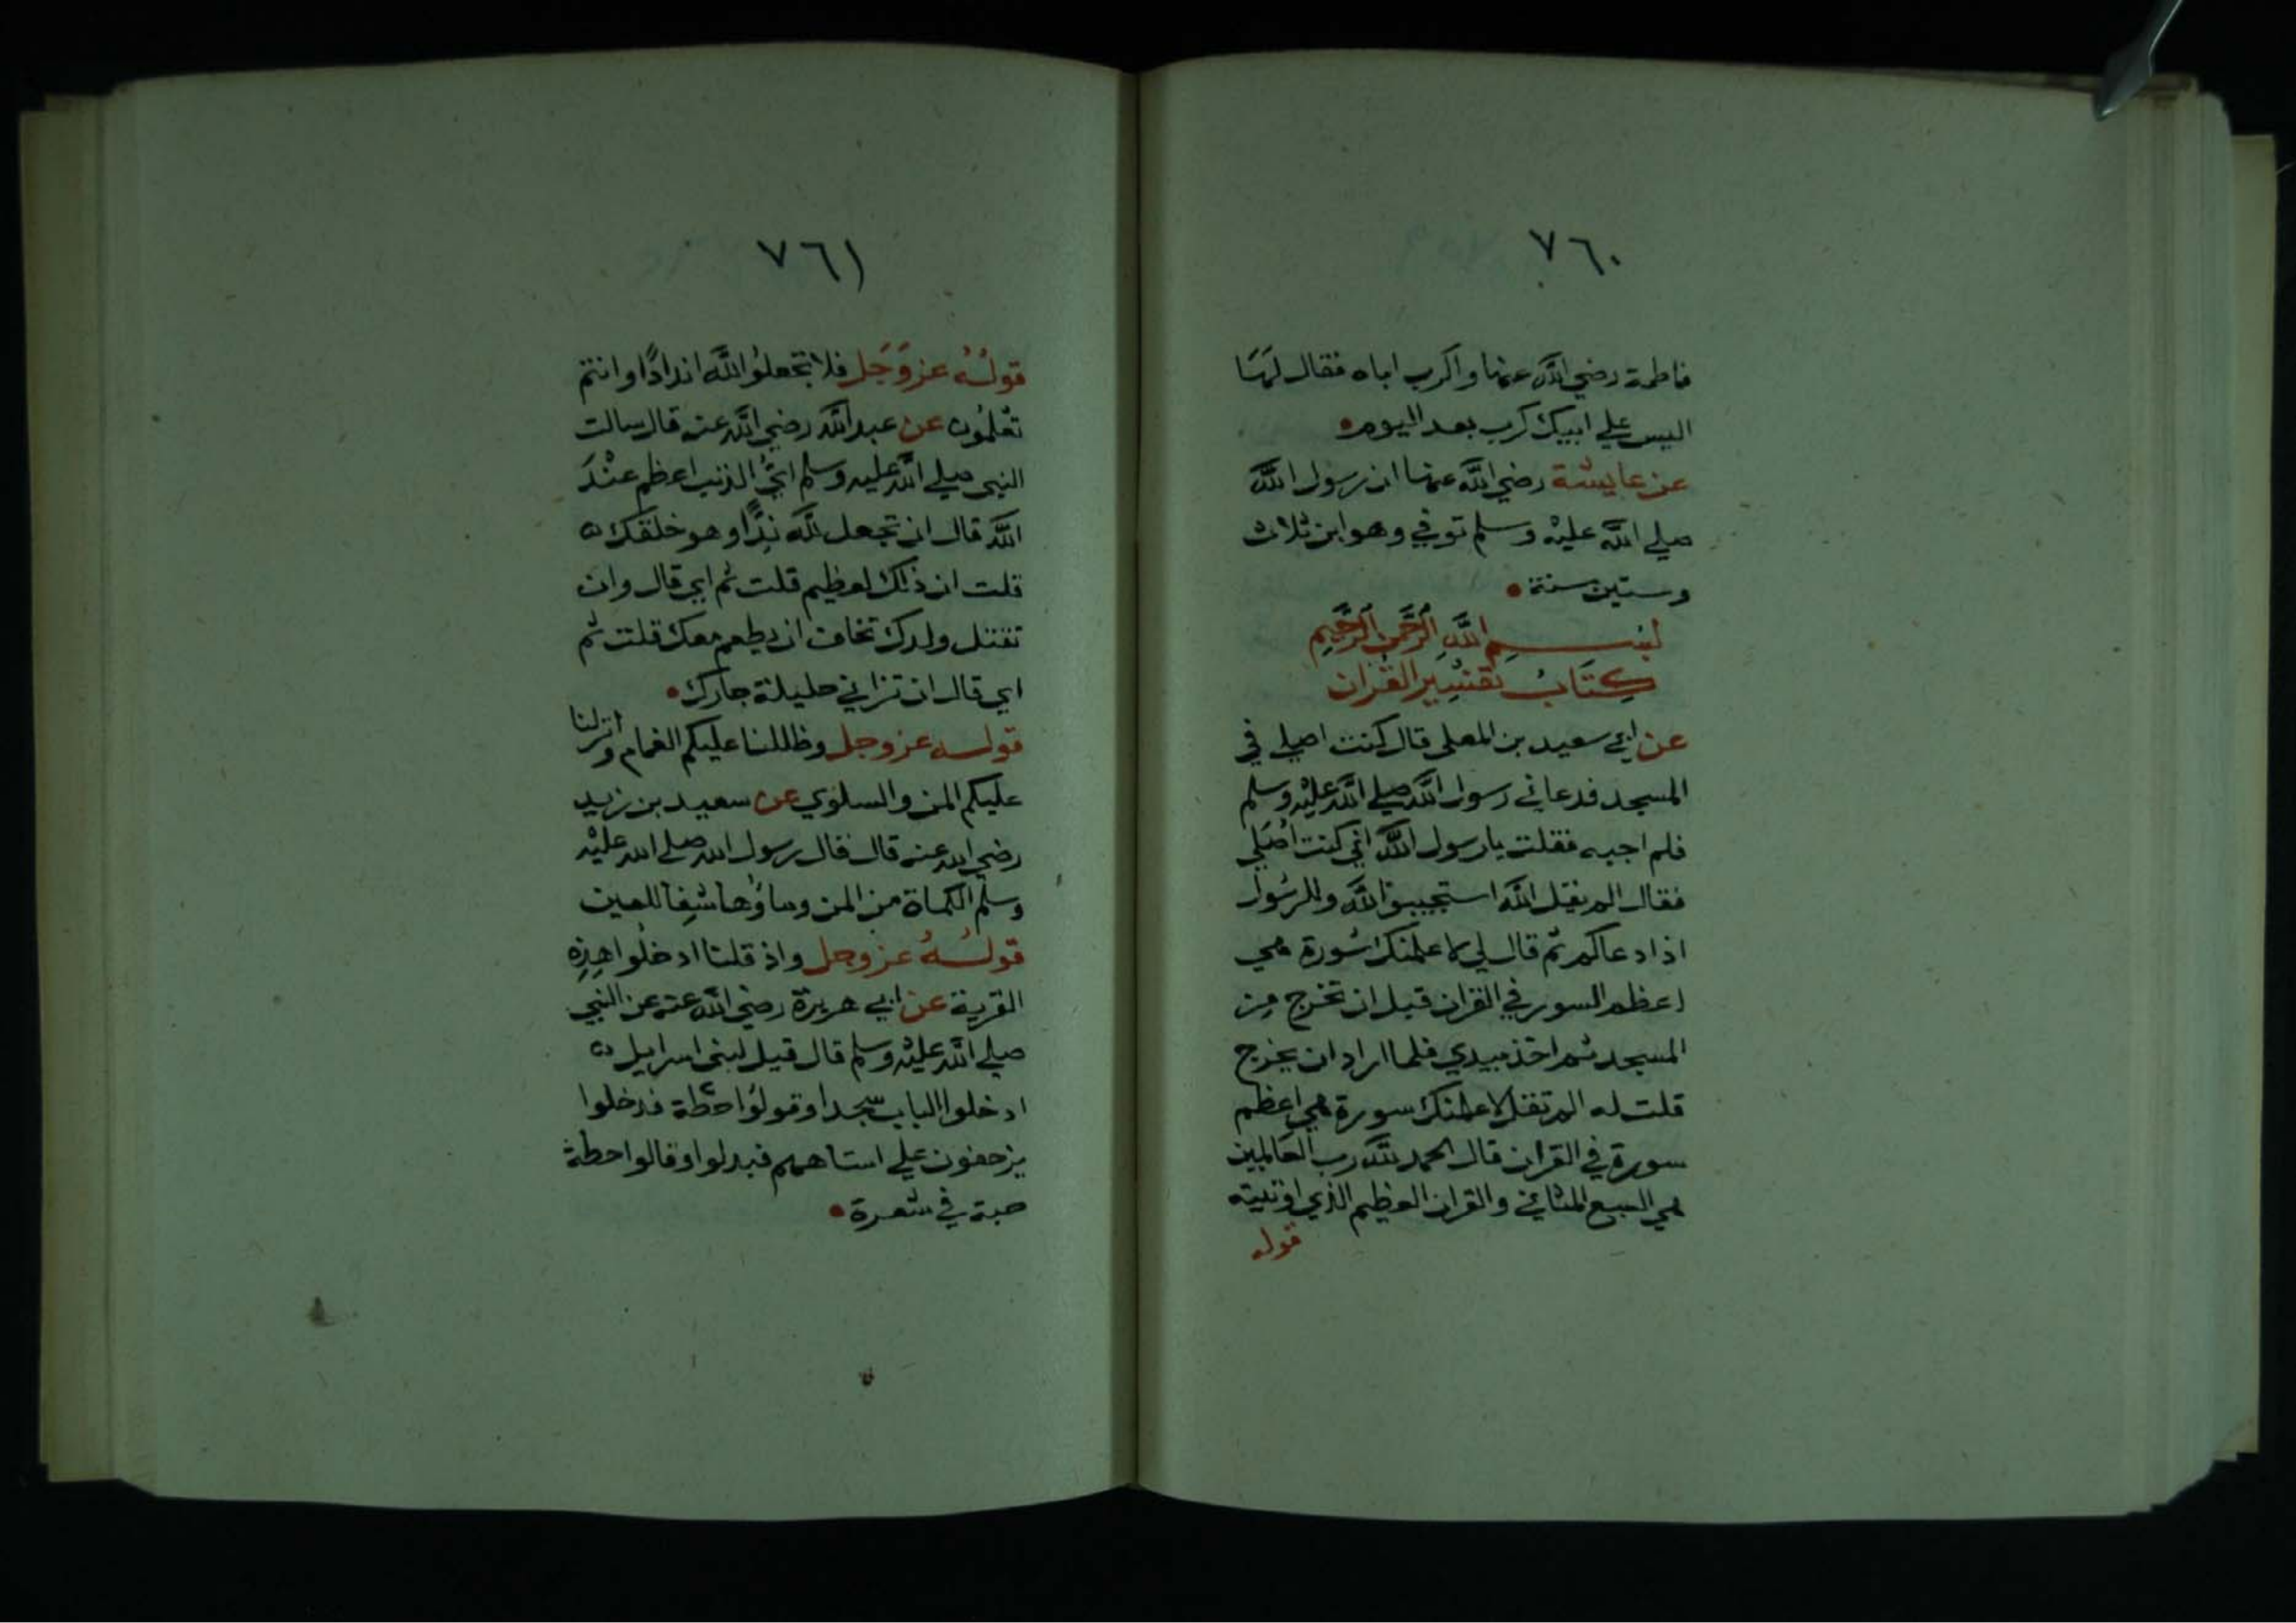 ٧٦٠
فاطمة رضي الله عنها واكرب اباه فقال لها
اليس علي ابيك كرب بعد اليوم
عن عايشة رضي الله عنها ان رسول الله
صلي الله عليه وسلم توفي وهو ابن ثلاث
وستين سنة
بسم الله الرحمن الرحيم
كتاب تفسير القران
عن ابي سعيد بن المعلى قال كنت اصلي في
المسجد فدعاني رسول الله صلي الله عليه وسلم
فلم اجبه فقلت يارسول الله اني كنت اصلي
فقال الم يقل الله استجيبوا لله وللرسول
اذا دعاكم ثم قال لي لاعلمنك سورة هي
اعظم السور في القران قبل ان تخرج من
المسجد ثم اخذ بيدي فلما اراد ان يخرج
قلت له الم تقل لاعلمنك سورة هي اعظم
سورة في القران قال الحمد لله رب العالمين
هي السبع المثاني والقران العظيم الذي اوتيته
قوله
٧٦١
قوله عز وجل فلا تجعلوا لله اندادا وانتم
تعلمون عن عبد الله رضي الله عنه قال سالت
النبي صلي الله عليه وسلم اي الذنب اعظم عند
الله قال ان تجعل لله ندا وهو خلقك
قلت ان ذلك لعظيم قلت ثم اي قال وان
تقتل ولدك تخاف ان يطعم معك قلت ثم
اي قال ان تزاني حليلة جارك
قوله عز وجل وظللنا عليكم الغمام وانزلنا
عليكم المن والسلوي عن سعيد بن زيد
رضي الله عنه قال قال رسول الله صلي الله عليه
وسلم الكماة من المن وماؤها شفا للعين
قوله عز وجل واذ قلنا ادخلوا هذه
القرية عن ابي هريرة رضي الله عنه عن النبي
صلي الله عليه وسلم قال قيل لبني اسرايل
ادخلوا الباب سجدا وقولوا حطة فدخلوا
يزحفون علي استاههم فبدلوا وقالوا حطة
حبة في شعرة